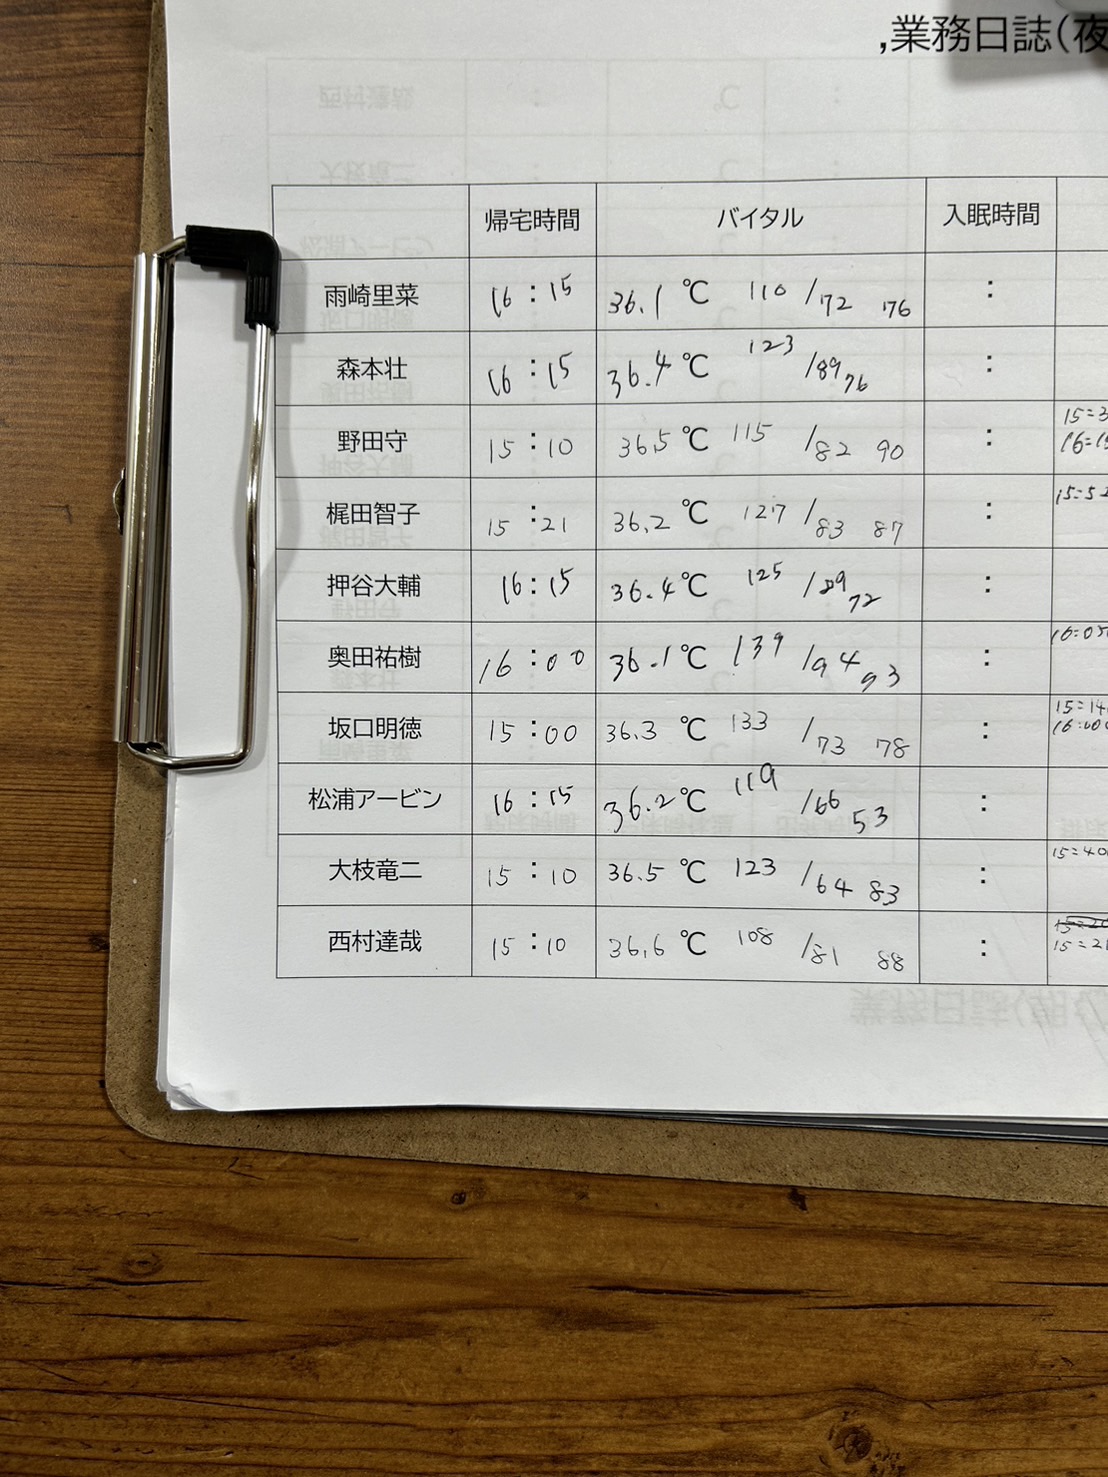 ,業務日誌(夜
帰宅時間 バイタル 入眠時間
雨崎里菜 16:15 36.1 ℃ 110 /72 76 :
森本壮 16:15 36.4 ℃ 123 /89 76 :
野田守 15:10 36.5 ℃ 115 /82 90 : 15=3
16=15
梶田智子 15:21 36.2 ℃ 127 /83 87 : 15=52
押谷大輔 16:15 36.4 ℃ 125 /89 72 :
奥田祐樹 16:00 36.1 ℃ 139 /94 93 : 16:05
坂口明徳 15:00 36.3 ℃ 133 /73 78 : 15=14
16:00
松浦アービン 16:15 36.2 ℃ 119 /66 53 :
大枝竜二 15:10 36.5 ℃ 123 /64 83 : 15=40
西村達哉 15:10 36.6 ℃ 108 /81 88 :
15=21